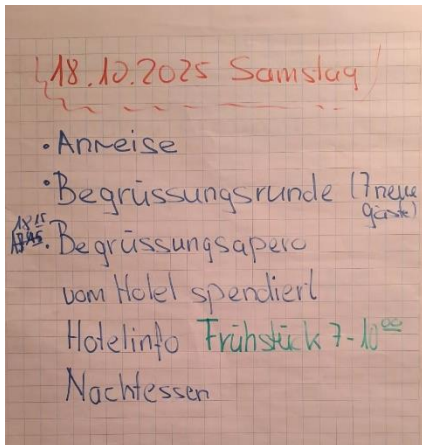 18.10.2025 Samstag
• Anreise
• Begrüssungsrunde (7 neue
gäste)
18 15
• Begrüssungsapero
vom Hotel spendiert
Hotelinfo Frühstück 7-10 00
Nachtessen